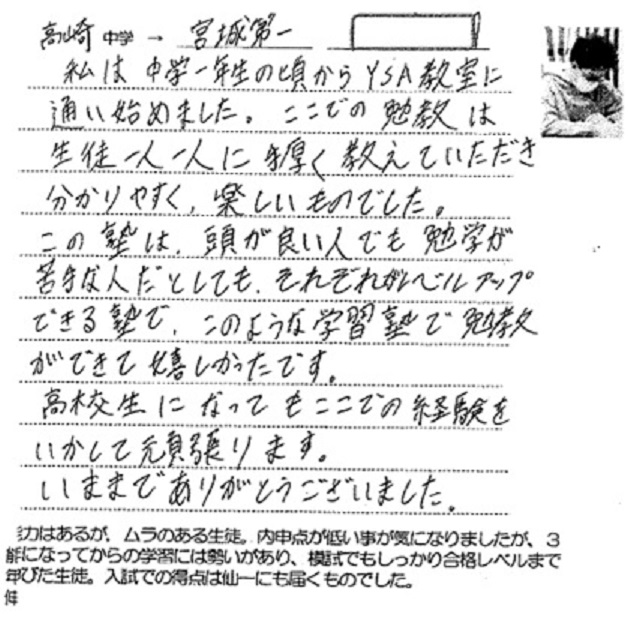 高崎中学 → 宮城第一
私は中学一年生の頃からYSA教室に
通い始めました。ここでの勉教は
生徒一人一人に手厚く教えていただき
分かりやすく、楽しいものでした。
この塾は、頭が良い人でも勉学が
苦手な人だとしても、それぞれがレベルアップ
できる塾で、このような学習塾で勉教
ができて嬉しかったです。
高校生になってもここでの経験を
いかして頑張ります。
いままでありがとうございました。
力はあるが、ムラのある生徒。内申点が低い事が気になりましたが、3
能になってからの学習には勢いがあり、模試でもしっかり合格レベルまで
びた生徒。入試での得点は仙一にも届くものでした。